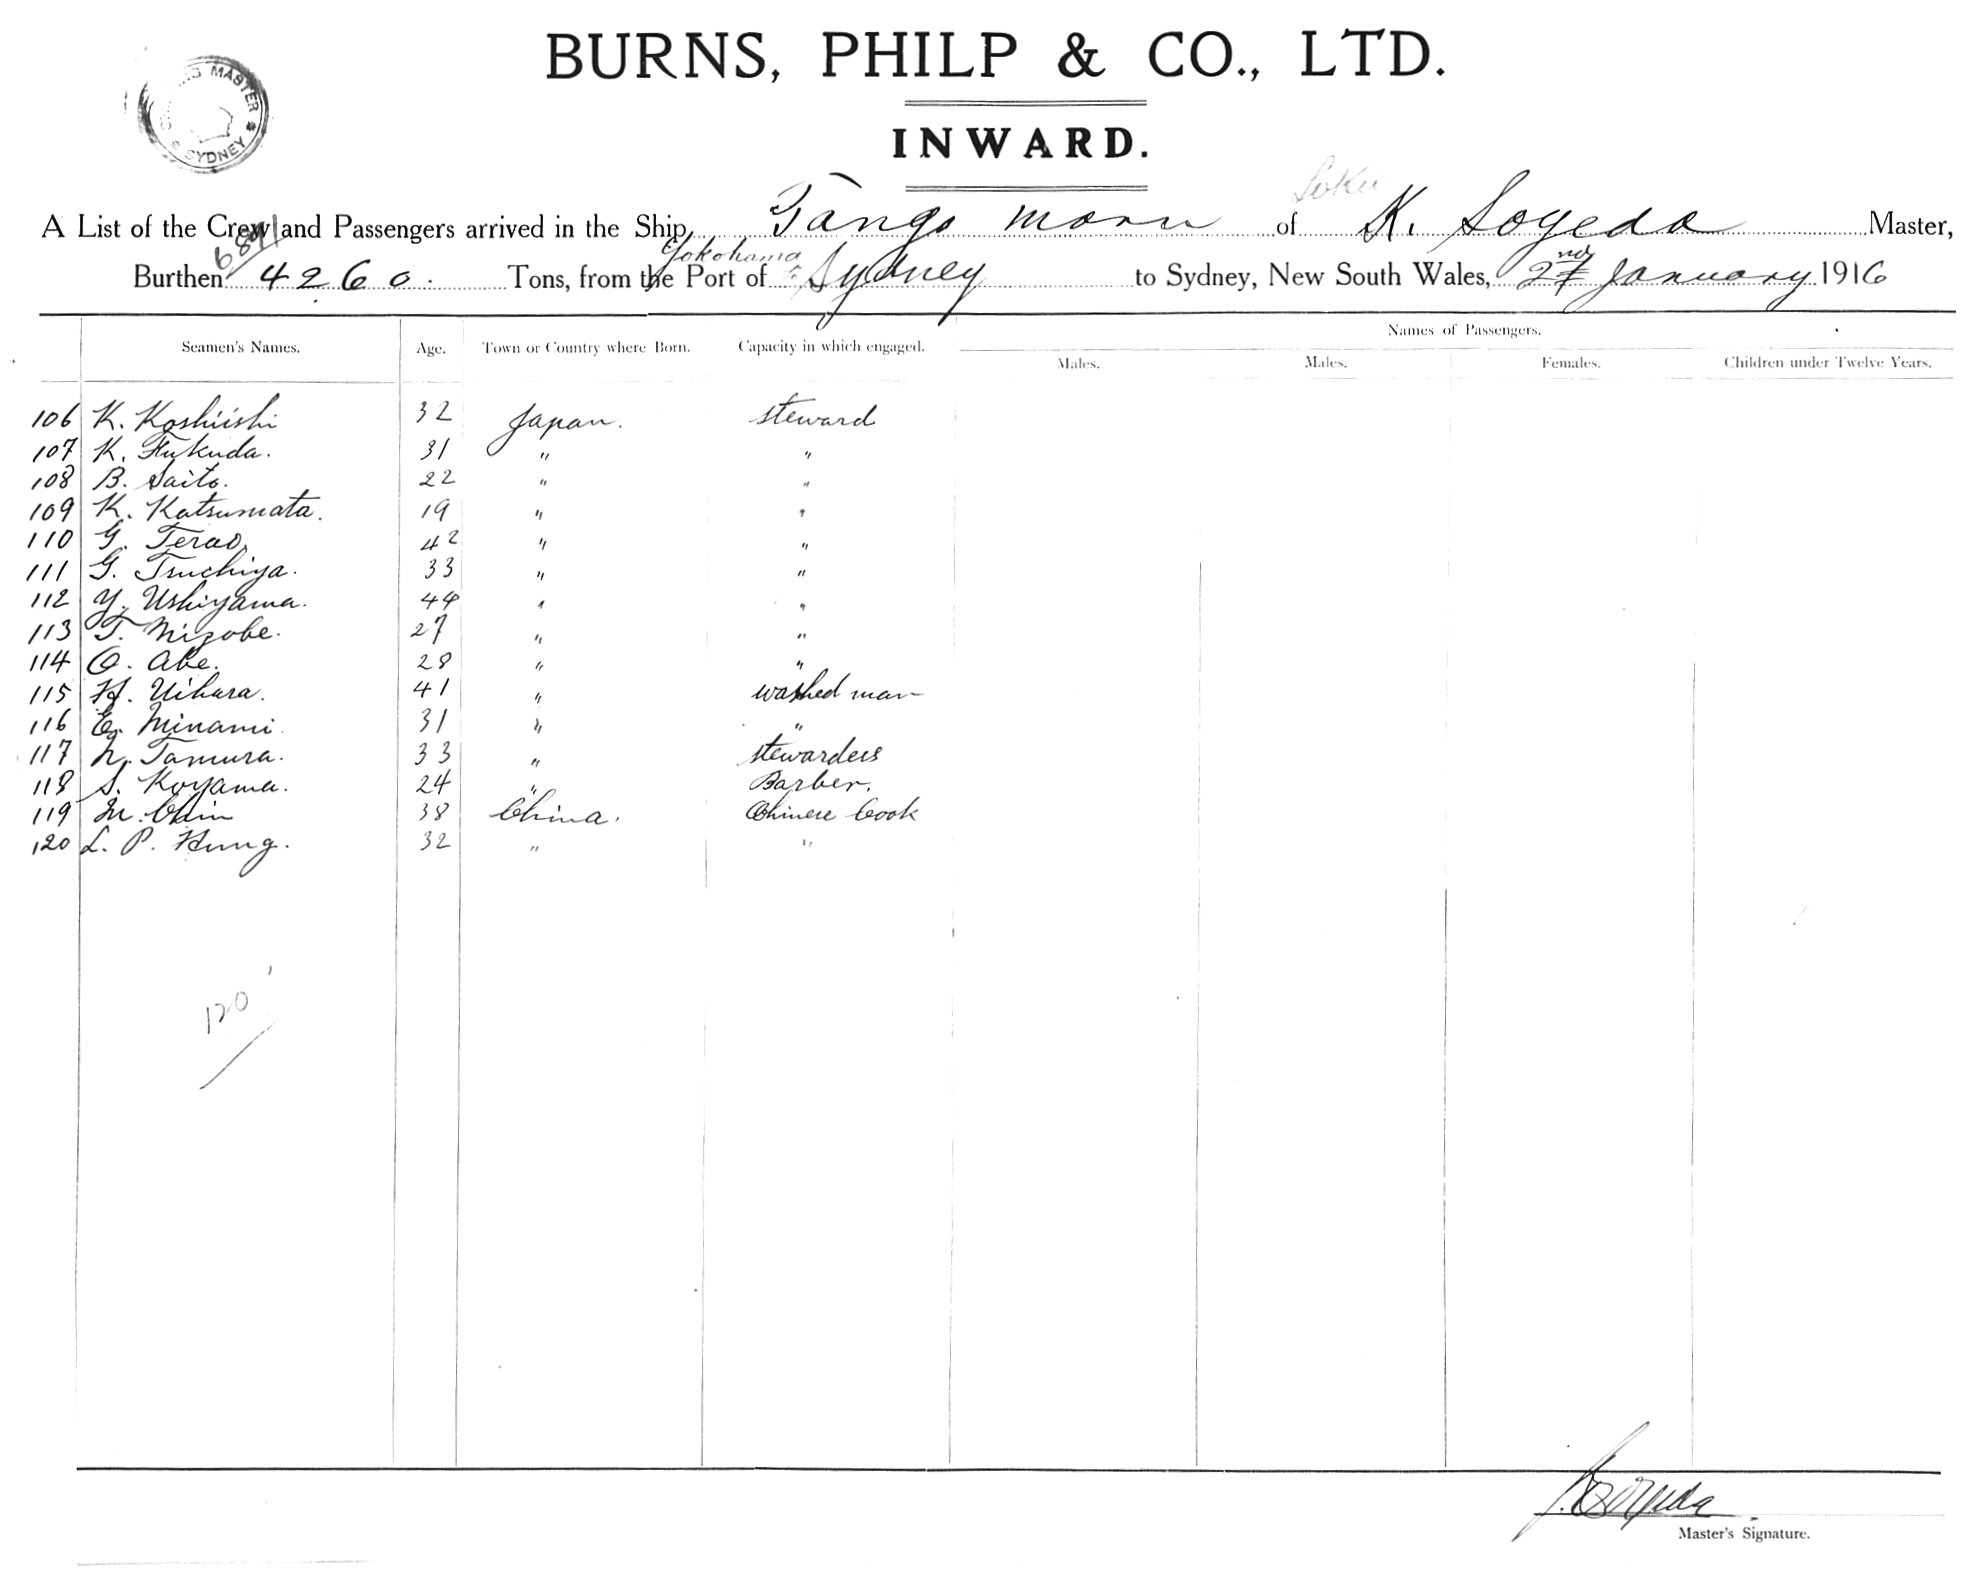 BURNS, PHILP & CO., LTD.
INWARD.
MASTER * SYDNEY *
A List of the Crew and Passengers arrived in the Ship Tango Maru of K. Soyeda Master,
6841
Burthen 4260. Tons, from the Port of Yokohama to Sydney to Sydney, New South Wales, 2nd January 1916
Names of Passengers.
Seamen's Names. Age. Town or Country where Born. Capacity in which engaged. Males. Males. Females. Children under Twelve Years.
106 K. Koshiishi 32 Japan. steward
107 K. Fukuda. 31 " "
108 B. Saito. 22 " "
109 K. Katsumata. 19 " "
110 G. Terao. 42 " "
111 G. Tsuchiya. 33 " "
112 Y. Ushiyama. 44 " "
113 T. Mizobe. 27 " "
114 O. Abe. 28 " "
115 H. Uihara. 41 " washed man
116 E. Minami. 31 " "
117 N. Tamura. 33 " stewardess
118 S. Koyama. 24 " Barber.
119 M. Chin 38 China. Chinese Cook
120 L. P. Hung. 32 " "
120
K. Soyeda
Master's Signature.